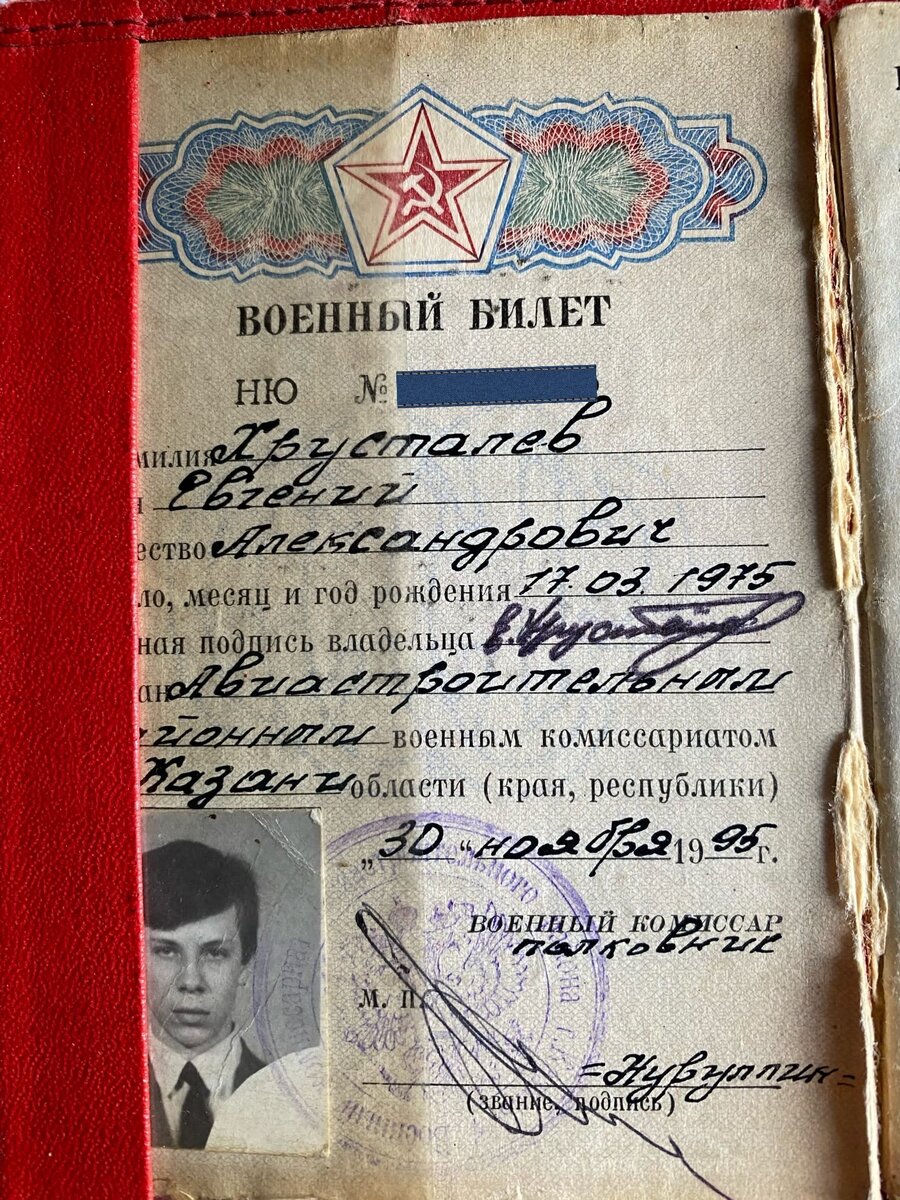 ВОЕННЫЙ БИЛЕТ
НЮ №
милия Хрусталев
Евгений
ество Александрович
ло, месяц и год рождения 17.03.1975
ная подпись владельца
ан Авиастроительным
айонным военным комиссариатом
Казани области (края, республики)
„30“ ноября 1995 г.
ВОЕННЫЙ КОМИССАР
полковник
М. П.
=Нурулин=
(звание, подпись)